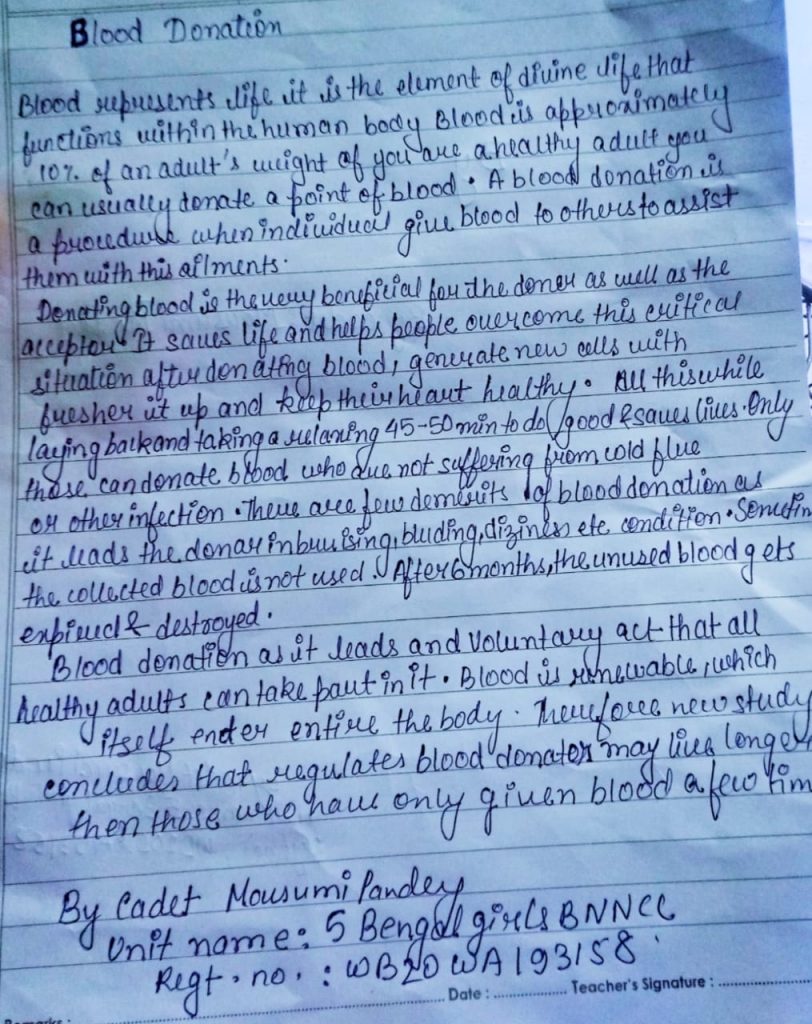 Blood Donation
Blood represents life it is the element of divine life that
functions within the human body Blood is approximately
10% of an adult's weight of you are a healthy adult you
can usually donate a point of blood. A blood donation is
a procedure when individual give blood to others to assist
them with this ailments.
Donating blood is the very beneficial for the doner as well as the
acceptor It saves life and helps people overcome this critical
situation after donating blood, generate new cells with
fresher it up and keep their heart healthy. All this while
laying back and taking a relaxing 45-50 min to do good & saves lives. Only
those can donate blood who due not suffering from cold flue
or other infection. There are few demerits of blood donation as
it leads the donar in bruising, bluding, diziness etc condition. Sometim
the collected blood is not used. After 6 months, the unused blood gets
expired & destroyed.
Blood donation as it leads and voluntary act that all
healthy adults can take part in it. Blood is renewable, which
itself enter entire the body. Therefore new study
concludes that regulates blood donates may live longer
then those who have only given blood a few tim
By Cadet Mousumi Pandey
Unit name: 5 Bengal girls BNNCC
Regt. no. : WB20WA193158
Date : Teacher's Signature :
Remarks :